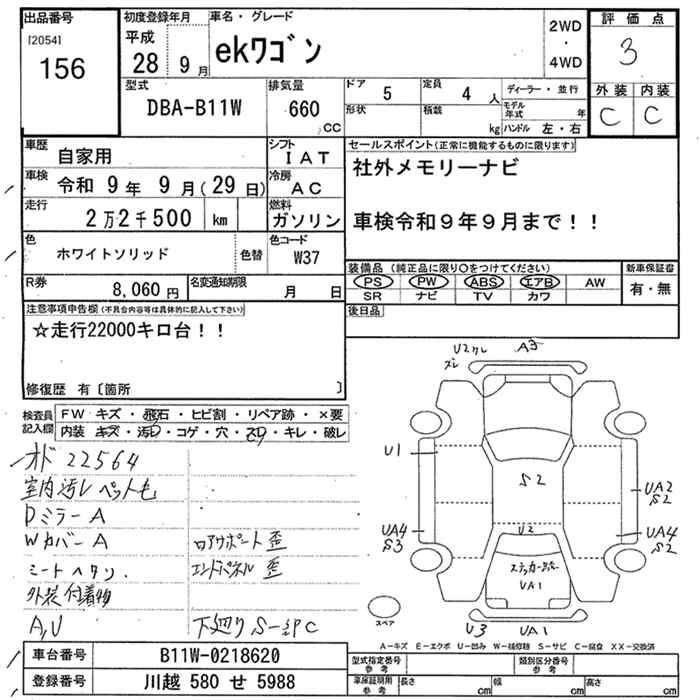 出品番号
[2054]
156
初度登録年月
平成
28 9月
車名・グレード
ekワゴン
2WD
・
4WD
評価点
3
外装 内装
C C
型式
DBA-B11W
排気量
660
CC
ドア 5
定員 4 人
形状
積載 kg
ディーラー・並行
モデル年式 年
ハンドル 左・右
車歴
自家用
シフト
IAT
車検 令和 9年 9月(29日)
冷房
AC
走行
2万2千500 km
燃料
ガソリン
色
ホワイトソリッド
色替
色コード
W37
R券 8,060円
名変通知期限 月 日
セールスポイント(正常に機能するものに限ります)
社外メモリーナビ
車検令和9年9月まで!!
装備品(純正品に限り○をつけてください)
PS PW ABS エアB AW
SR ナビ TV カワ
新車保証書
有・無
後日品
注意事項申告欄(不具合内容等は具体的に記入して下さい)
☆走行22000キロ台!!
修復歴 有〔箇所 〕
検査員記入欄
FW キズ・飛石・ヒビ割・リペア跡・×要
内装 キズ・汚れ・コゲ・穴・スリ・キレ・破レ
オド 22564
室内汚レ ペット毛
Dミラー A
Wカバー A
シートヘタリ.
外装付着物
A,U
ロアサポート 歪
エンドパネル 歪
下廻り S一部C
U2クレ
ズレ
A3
U1
S2
UA2
S2
UA4
S3
U2
UA4
S2
ステッカー跡
UA1
U3
UA1
スペア
A−キズ E−エクボ U−凹み W−補修跡 S−サビ C−腐食 XX−交換済
車台番号 B11W-0218620
登録番号 川越 580 せ 5988
型式指定番号
参考
類別区分番号
参考
車庫証明用
参考
長さ cm
幅 cm
高さ cm